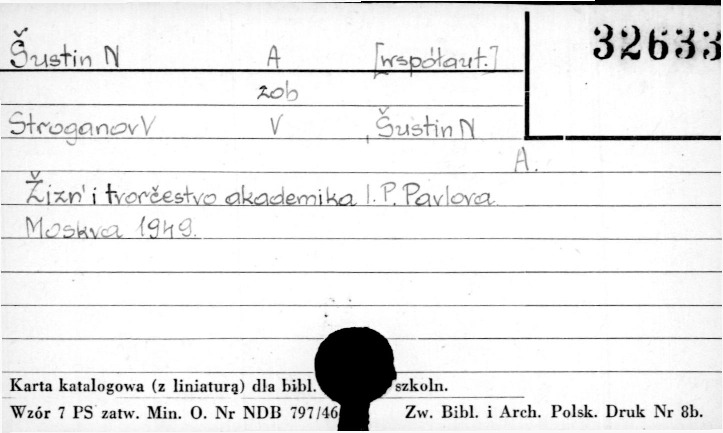 Šustin N A [współaut.] 32633
zob
Stroganov V V , Šustin N
A.
Žizn' i tvorčestvo akademika I. P. Pavlova.
Moskva 1949.
Karta katalogowa (z liniaturą) dla bibl. szkoln.
Wzór 7 PS zatw. Min. O. Nr NDB 797/46 Zw. Bibl. i Arch. Polsk. Druk Nr 8b.